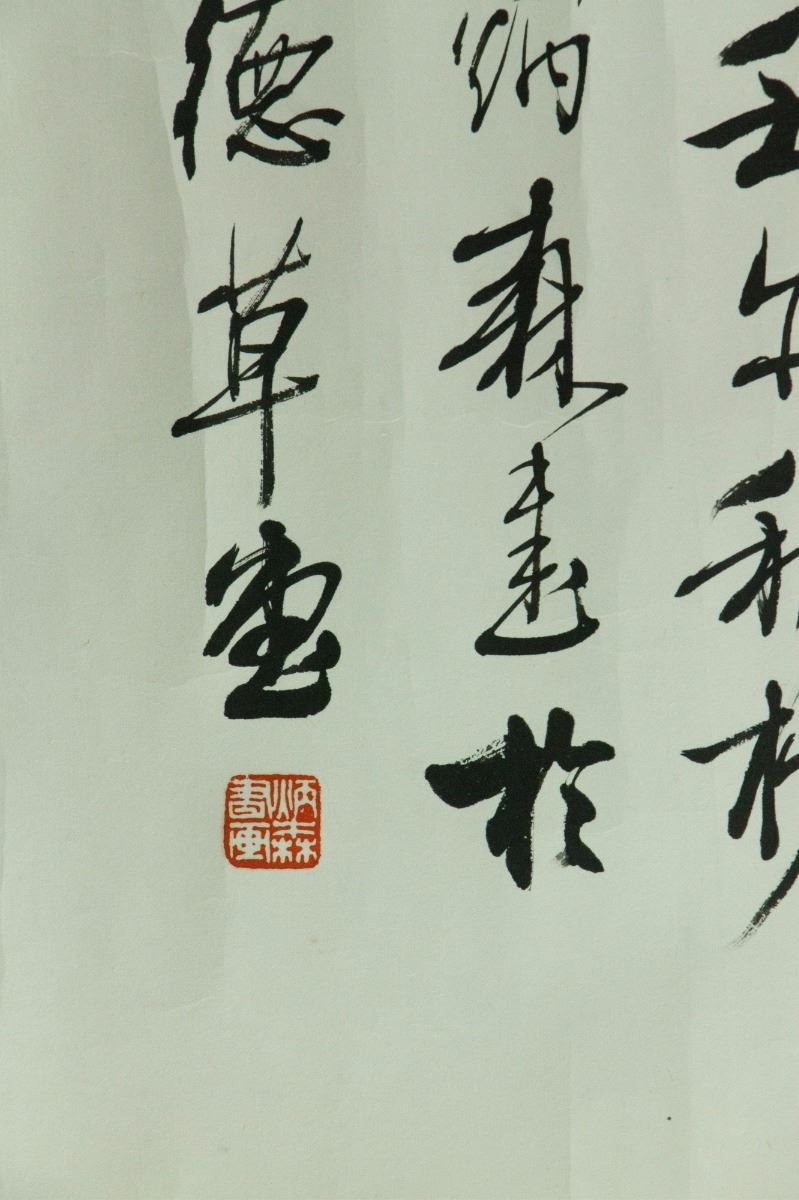 壬午秋杪
炳森畫於
德草堂
炳森
書画